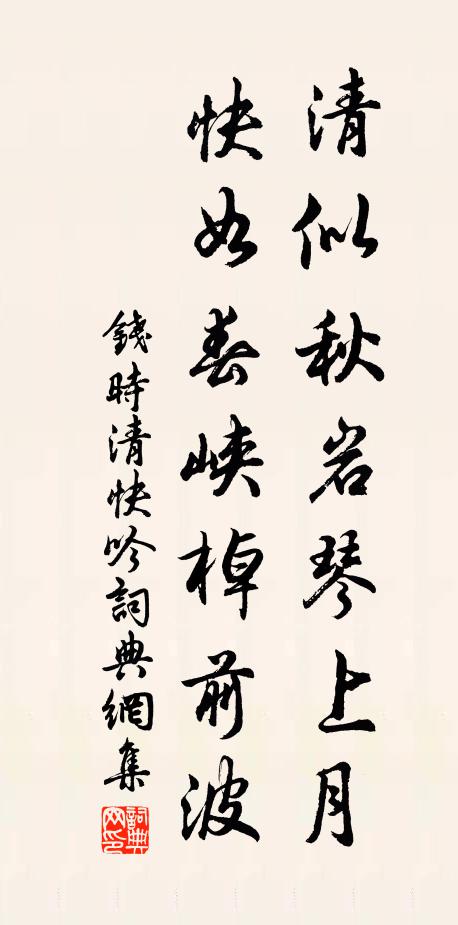 清似秋岩琴上月
快如春峡棹前波
錢時清快吟詞典網集
詞典網印